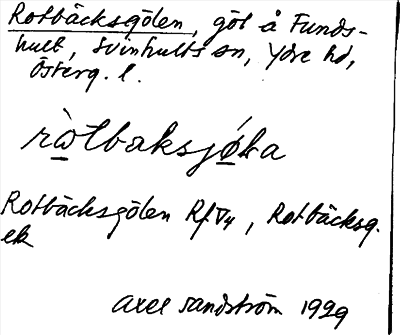 Rotbäcksgölen, göl å Funds-
hult, Svinhults sn, Ydre hd,
Österg. l.
ròtbaksjǿka
Rotbäcksgölen Rf V4, Rotbäcksg.
ek
Axel Sandström 1929